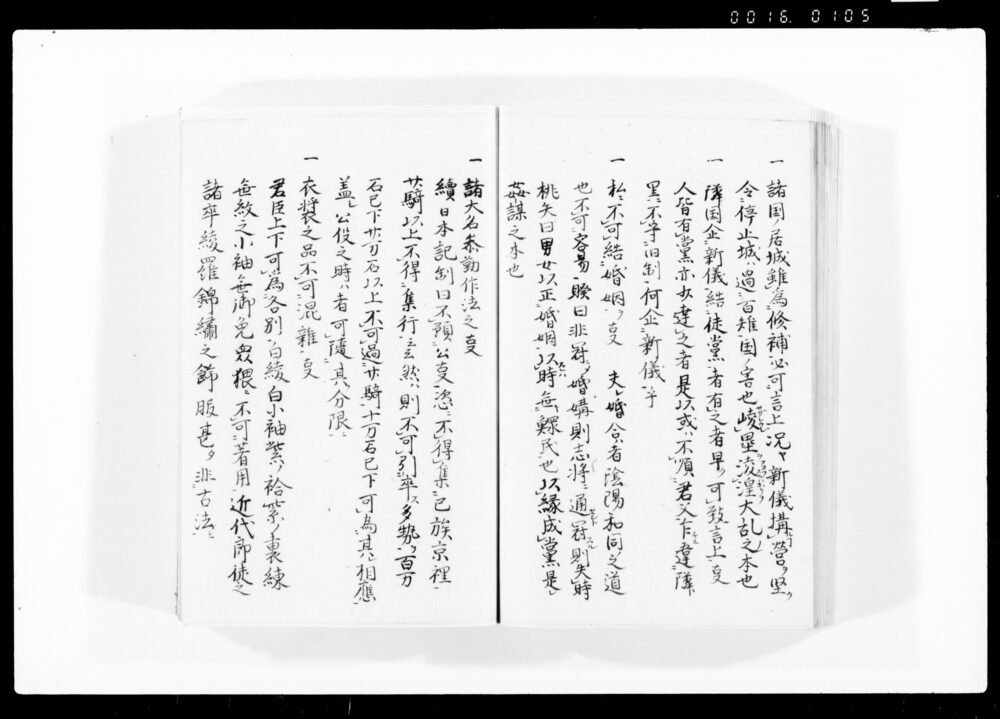 0016.0105
一 諸国ノ居城雖為修補必可言上況ヤ新儀構営ノ堅ク
令停止城ハ過百雉国ノ害也峻塁浚湟大乱之本也
一 隣国企新儀結徒黨者有之者早ク可致言上支
人皆有黨亦少達之者是以或ハ不順君父乍違隣
里ニ不守旧制何企新儀乎
一 私ニ不可結婚姻ヲ支 夫レ婚合者陰陽和同之道
也不可容易睽曰非冦婚媾則志将通冦則失時
桃夭曰男女以正婚姻以時無鰥民也以縁成黨是
姦謀之本也
一 諸大名参勤作法之支
續日本記制曰不預公支恣ニ不得集己族京裡
廿騎以上不得集行云云然ハ則不可引率多勢ヲ百万
石已下廿万石以上不可過廿騎十万石已下可為其相應
盖公役之時ハ者可随其分限ニ
一 衣裳之品不可混雑支
君臣上下可為各別白綾白小袖紫ノ袷紫ノ裏練
無紋之小袖無御免衆猥ニ不可著用近代郎従之
諸卒綾羅錦繡之飾服甚タ非古法ニ